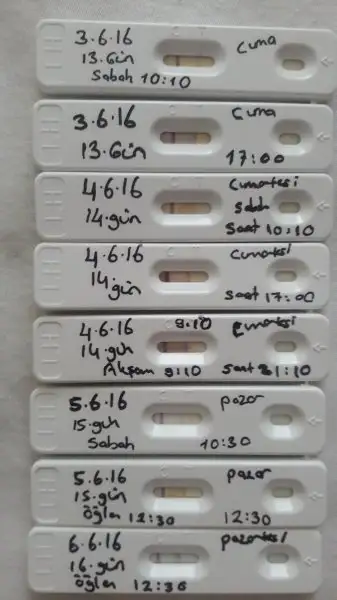 3.6.16 Cuma
13.Gün
Sabah 10:10
3.6.16 Cuma
13.Gün 17:00
4.6.16 Cumartesi
14.gün Sabah
Saat 10:10
4.6.16 Cumartesi
14.gün Saat 17:00
4.6.16 9:10 Cumartesi
14.gün
Akşam 9:10 Saat 21:10
5.6.16 pazar
15.gün
Sabah 10:30
5.6.16 pazar
15.gün
öğlen 12:30 12:30
6.6.16 pazartesi
16.gün
öğlen 12:30